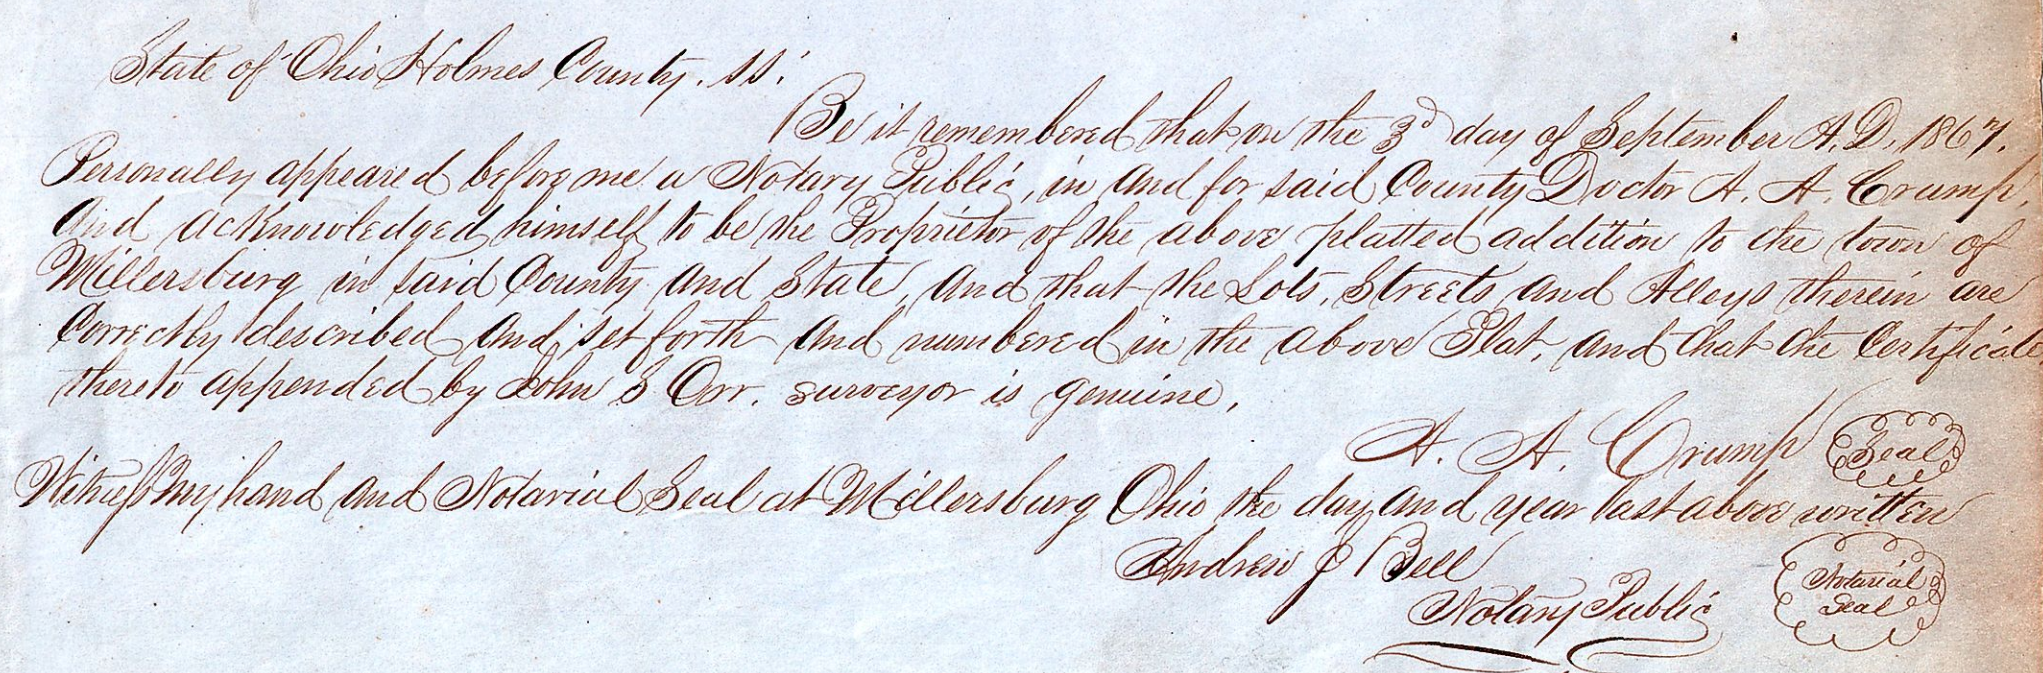 State of Ohio Holmes County. ss:
Be it remembered that on the 3d day of September A.D. 1867.
Personally appeared before me a Notary Public, in and for said County Doctor A. A. Crump,
and acknowledged himself to be the Proprietor of the above platted addition to the town of
Millersburg in said County and State, and that the Lots, Streets and Alleys therein are
Correctly described and set forth and numbered in the above Plat, and that the Certificate
thereto appended by John S Orr. surveyor is genuine,
A. A. Crump Seal
Witness my hand and Notarial Seal at Millersburg Ohio the day and year last above written
Andrew J Bell Notarial
Notary Public Seal